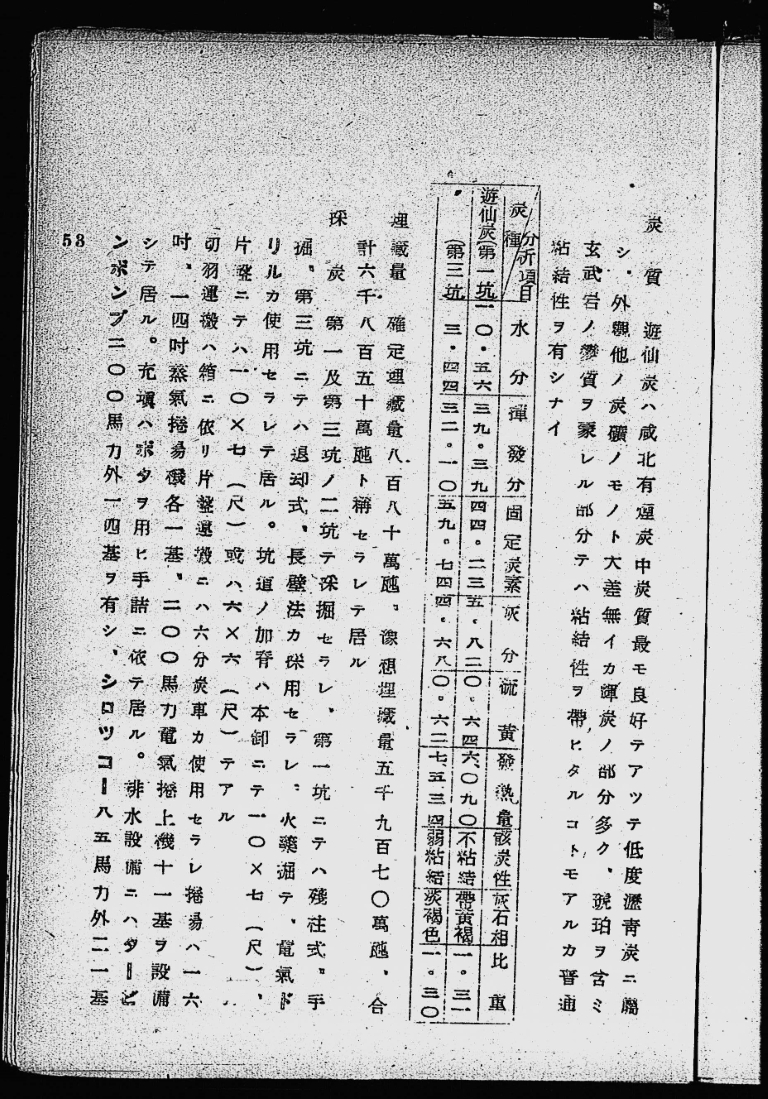 炭質　遊仙炭ハ咸北有煙炭中炭質最モ良好テアツテ低度瀝靑炭ニ屬
シ、外觀他ノ炭礦ノモノト大差無イカ輝炭ノ部分多ク、琥珀ヲ含ミ
玄武岩ノ變質ヲ蒙レル部分テハ粘結性ヲ帶ヒタルコトモアルカ普通
粘結性ヲ有シナイ
炭種／分析項目　水分　揮發分　固定炭素　灰分　硫黃　發熱量　骸炭性　灰石相　比重
遊仙炭(第一坑　一〇・五六　三九・三九　四四・二三　五・八二　〇・六四　六、〇九〇　不粘結　帶黃褐　一・三一
(第三坑　三・四四　三二・一〇　五九・七四　四・六八　〇・六二　七五三四　弱粘結　淡褐色　一・三〇
埋藏量　確定埋藏量八百八十萬瓲、豫想埋藏量五千九百七〇萬瓲、合
計六千八百五十萬瓲ト稱セラレテ居ル
採炭　第一及第三坑ノ二坑テ採掘セラレ、第一坑ニテハ殘柱式、手
掘、第三坑ニテハ退却式、長壁法カ採用セラレ、火藥掘テ、電氣ド
リルカ使用セラレテ居ル。坑道ノ加脊ハ本卸ニテ一〇×七(尺)、
片盤ニテハ一〇×七(尺)或ハ六×六(尺)テアル
切羽運搬ハ箱ニ依リ片盤運搬ニハ六分炭車カ使用セラレ捲揚ハ一六
吋、一四吋蒸氣捲揚機各一基、二〇〇馬力電氣捲上機十一基ヲ設備
シテ居ル。充塡ハボタヲ用ヒ手詰ニ依テ居ル。排水設備ニハタービ
ンポンプ二〇〇馬力外一四基ヲ有シ、シロツコー八五馬力外二一基
53